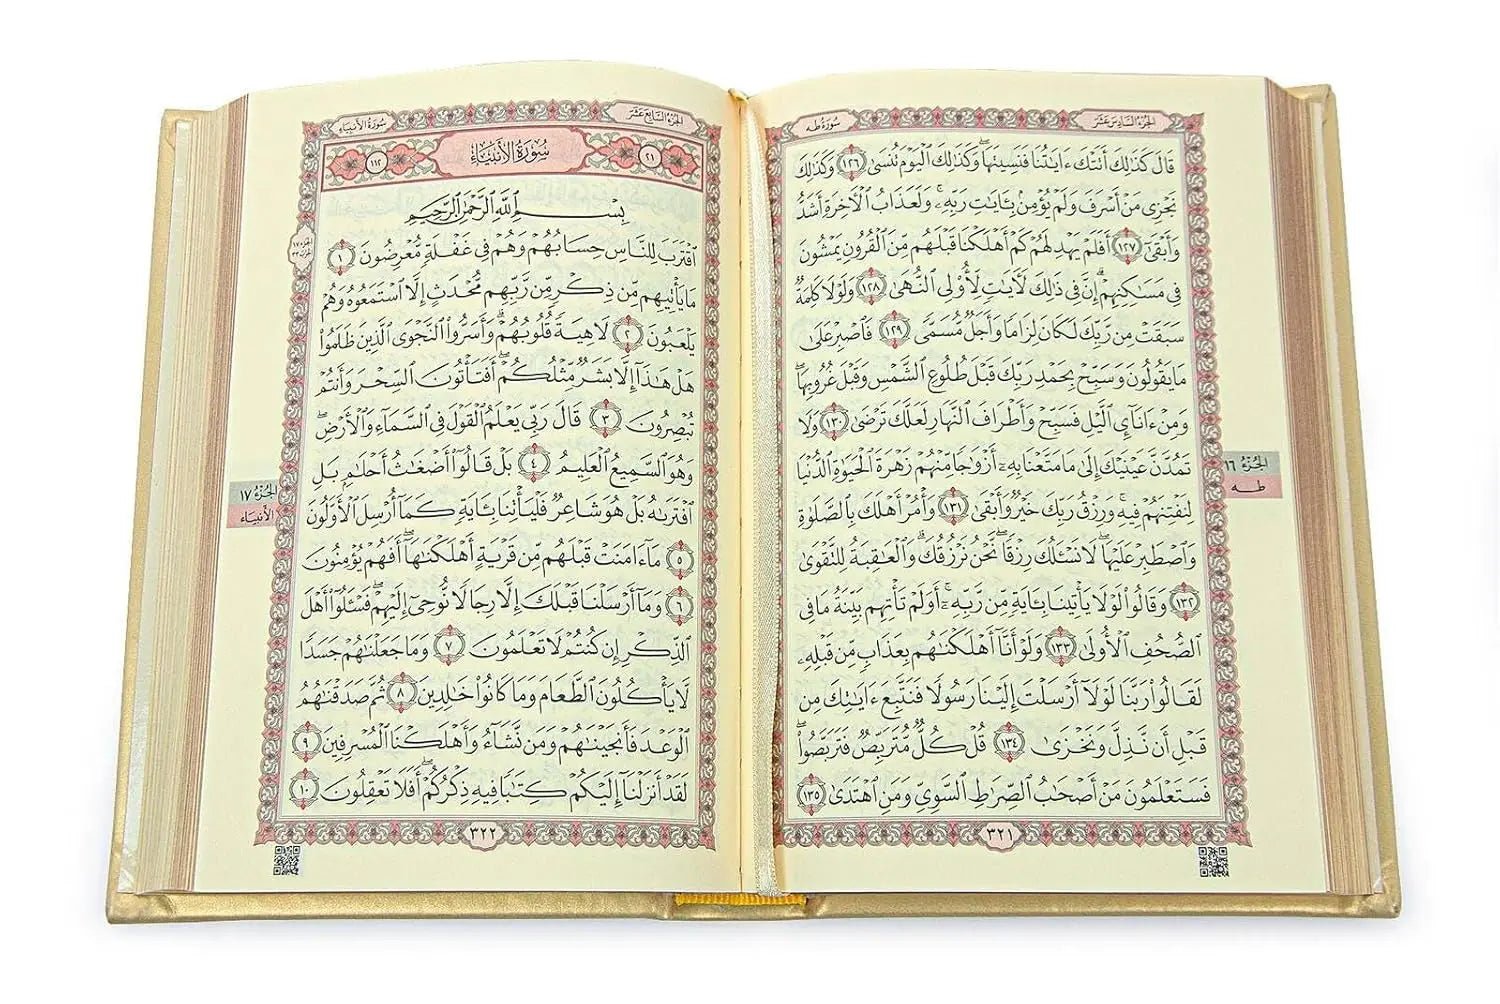 الجزء السادس عشر
سورة طه
قَالَ كَذَٰلِكَ أَتَتْكَ ءَايَٰتُنَا فَنَسِيتَهَا ۖ وَكَذَٰلِكَ ٱلْيَوْمَ تُنسَىٰ ١٢٦ وَكَذَٰلِكَ
نَجْزِى مَنْ أَسْرَفَ وَلَمْ يُؤْمِنۢ بِـَٔايَٰتِ رَبِّهِۦ ۚ وَلَعَذَابُ ٱلْـَٔاخِرَةِ أَشَدُّ
وَأَبْقَىٰٓ ١٢٧ أَفَلَمْ يَهْدِ لَهُمْ كَمْ أَهْلَكْنَا قَبْلَهُم مِّنَ ٱلْقُرُونِ يَمْشُونَ
فِى مَسَٰكِنِهِمْ ۗ إِنَّ فِى ذَٰلِكَ لَـَٔايَٰتٍ لِّأُو۟لِى ٱلنُّهَىٰ ١٢٨ وَلَوْلَا كَلِمَةٌ
سَبَقَتْ مِن رَّبِّكَ لَكَانَ لِزَامًا وَأَجَلٌ مُّسَمًّى ١٢٩ فَٱصْبِرْ عَلَىٰ
مَا يَقُولُونَ وَسَبِّحْ بِحَمْدِ رَبِّكَ قَبْلَ طُلُوعِ ٱلشَّمْسِ وَقَبْلَ غُرُوبِهَا ۖ
وَمِنْ ءَانَآئِ ٱلَّيْلِ فَسَبِّحْ وَأَطْرَافَ ٱلنَّهَارِ لَعَلَّكَ تَرْضَىٰ ١٣٠ وَلَا
تَمُدَّنَّ عَيْنَيْكَ إِلَىٰ مَا مَتَّعْنَا بِهِۦٓ أَزْوَٰجًا مِّنْهُمْ زَهْرَةَ ٱلْحَيَوٰةِ ٱلدُّنْيَا
لِنَفْتِنَهُمْ فِيهِ ۚ وَرِزْقُ رَبِّكَ خَيْرٌ وَأَبْقَىٰ ١٣١ وَأْمُرْ أَهْلَكَ بِٱلصَّلَوٰةِ
وَٱصْطَبِرْ عَلَيْهَا ۖ لَا نَسْـَٔلُكَ رِزْقًا ۖ نَّحْنُ نَرْزُقُكَ ۗ وَٱلْعَٰقِبَةُ لِلتَّقْوَىٰ
١٣٢ وَقَالُوا۟ لَوْلَا يَأْتِينَا بِـَٔايَةٍ مِّن رَّبِّهِۦٓ ۚ أَوَلَمْ تَأْتِهِم بَيِّنَةُ مَا فِى
ٱلصُّحُفِ ٱلْأُولَىٰ ١٣٣ وَلَوْ أَنَّآ أَهْلَكْنَٰهُم بِعَذَابٍ مِّن قَبْلِهِۦ
لَقَالُوا۟ رَبَّنَا لَوْلَآ أَرْسَلْتَ إِلَيْنَا رَسُولًا فَنَتَّبِعَ ءَايَٰتِكَ مِن
قَبْلِ أَن نَّذِلَّ وَنَخْزَىٰ ١٣٤ قُلْ كُلٌّ مُّتَرَبِّصٌ فَتَرَبَّصُوا۟ ۖ
فَسَتَعْلَمُونَ مَنْ أَصْحَٰبُ ٱلصِّرَٰطِ ٱلسَّوِىِّ وَمَنِ ٱهْتَدَىٰ ١٣٥
٣٢١
الجزء ١٦
طه
الجزء السابع عشر
سورة الأنبياء
٢١
سورة الأنبياء
١١٢
بِسْمِ ٱللَّهِ ٱلرَّحْمَٰنِ ٱلرَّحِيمِ
ٱقْتَرَبَ لِلنَّاسِ حِسَابُهُمْ وَهُمْ فِى غَفْلَةٍ مُّعْرِضُونَ ١
مَا يَأْتِيهِم مِّن ذِكْرٍ مِّن رَّبِّهِم مُّحْدَثٍ إِلَّا ٱسْتَمَعُوهُ وَهُمْ
يَلْعَبُونَ ٢ لَاهِيَةً قُلُوبُهُمْ ۗ وَأَسَرُّوا۟ ٱلنَّجْوَى ٱلَّذِينَ ظَلَمُوا۟
هَلْ هَٰذَآ إِلَّا بَشَرٌ مِّثْلُكُمْ ۖ أَفَتَأْتُونَ ٱلسِّحْرَ وَأَنتُمْ
تُبْصِرُونَ ٣ قَالَ رَبِّى يَعْلَمُ ٱلْقَوْلَ فِى ٱلسَّمَآءِ وَٱلْأَرْضِ ۖ
وَهُوَ ٱلسَّمِيعُ ٱلْعَلِيمُ ٤ بَلْ قَالُوٓا۟ أَضْغَٰثُ أَحْلَٰمٍۭ بَلِ
ٱفْتَرَىٰهُ بَلْ هُوَ شَاعِرٌ فَلْيَأْتِنَا بِـَٔايَةٍ كَمَآ أُرْسِلَ ٱلْأَوَّلُونَ
٥ مَآ ءَامَنَتْ قَبْلَهُم مِّن قَرْيَةٍ أَهْلَكْنَٰهَآ ۖ أَفَهُمْ يُؤْمِنُونَ
٦ وَمَآ أَرْسَلْنَا قَبْلَكَ إِلَّا رِجَالًا نُّوحِىٓ إِلَيْهِمْ ۖ فَسْـَٔلُوٓا۟ أَهْلَ
ٱلذِّكْرِ إِن كُنتُمْ لَا تَعْلَمُونَ ٧ وَمَا جَعَلْنَٰهُمْ جَسَدًا
لَّا يَأْكُلُونَ ٱلطَّعَامَ وَمَا كَانُوا۟ خَٰلِدِينَ ٨ ثُمَّ صَدَقْنَٰهُمُ
ٱلْوَعْدَ فَأَنجَيْنَٰهُمْ وَمَن نَّشَآءُ وَأَهْلَكْنَا ٱلْمُسْرِفِينَ ٩
لَقَدْ أَنزَلْنَآ إِلَيْكُمْ كِتَٰبًا فِيهِ ذِكْرُكُمْ ۖ أَفَلَا تَعْقِلُونَ ١٠
٣٢٢
الجزء ١٧
الأنبياء